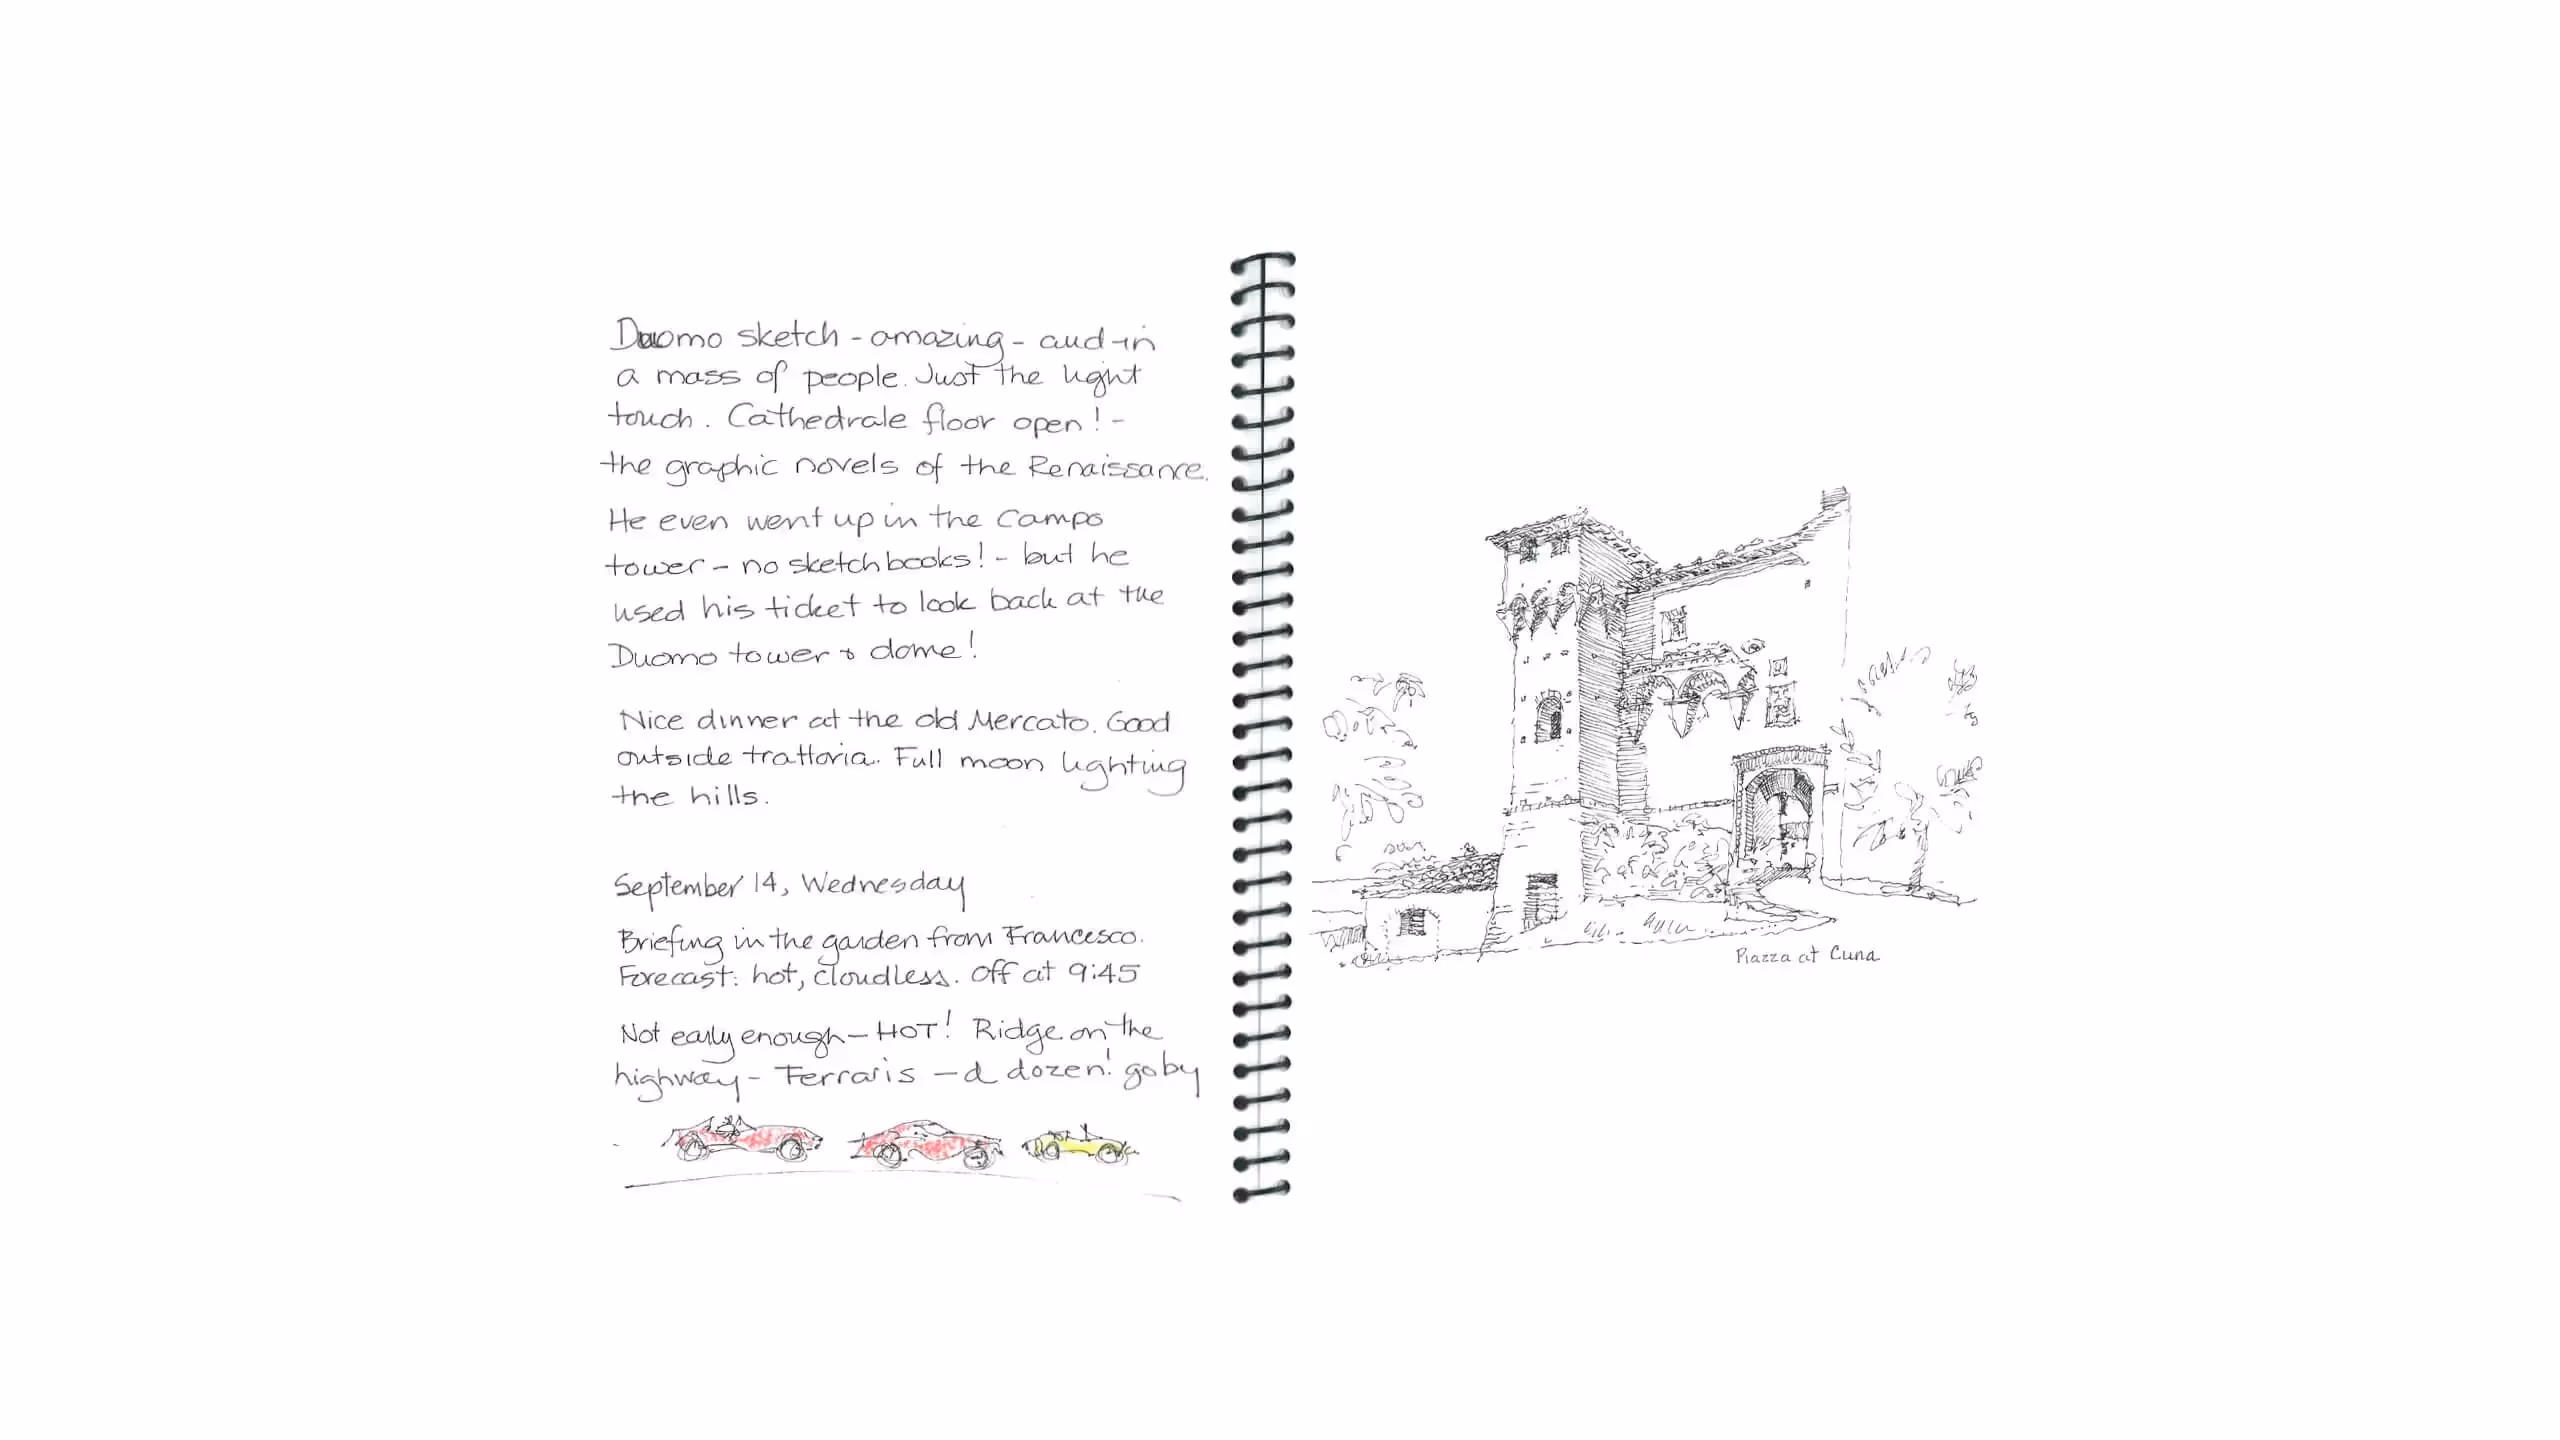 Duomo sketch - amazing - and in
a mass of people. Just the light
touch. Cathedrale floor open! -
the graphic novels of the Renaissance.
He even went up in the Campo
tower - no sketchbooks! - but he
used his ticket to look back at the
Duomo tower & dome!
Nice dinner at the old Mercato. Good
outside trattoria. Full moon lighting
the hills.
September 14, Wednesday
Briefing in the garden from Francesco.
Forecast: hot, cloudless. Off at 9:45
Not early enough - HOT! Ridge on the
highway - Ferraris - a dozen! go by
Piazza at Cuna